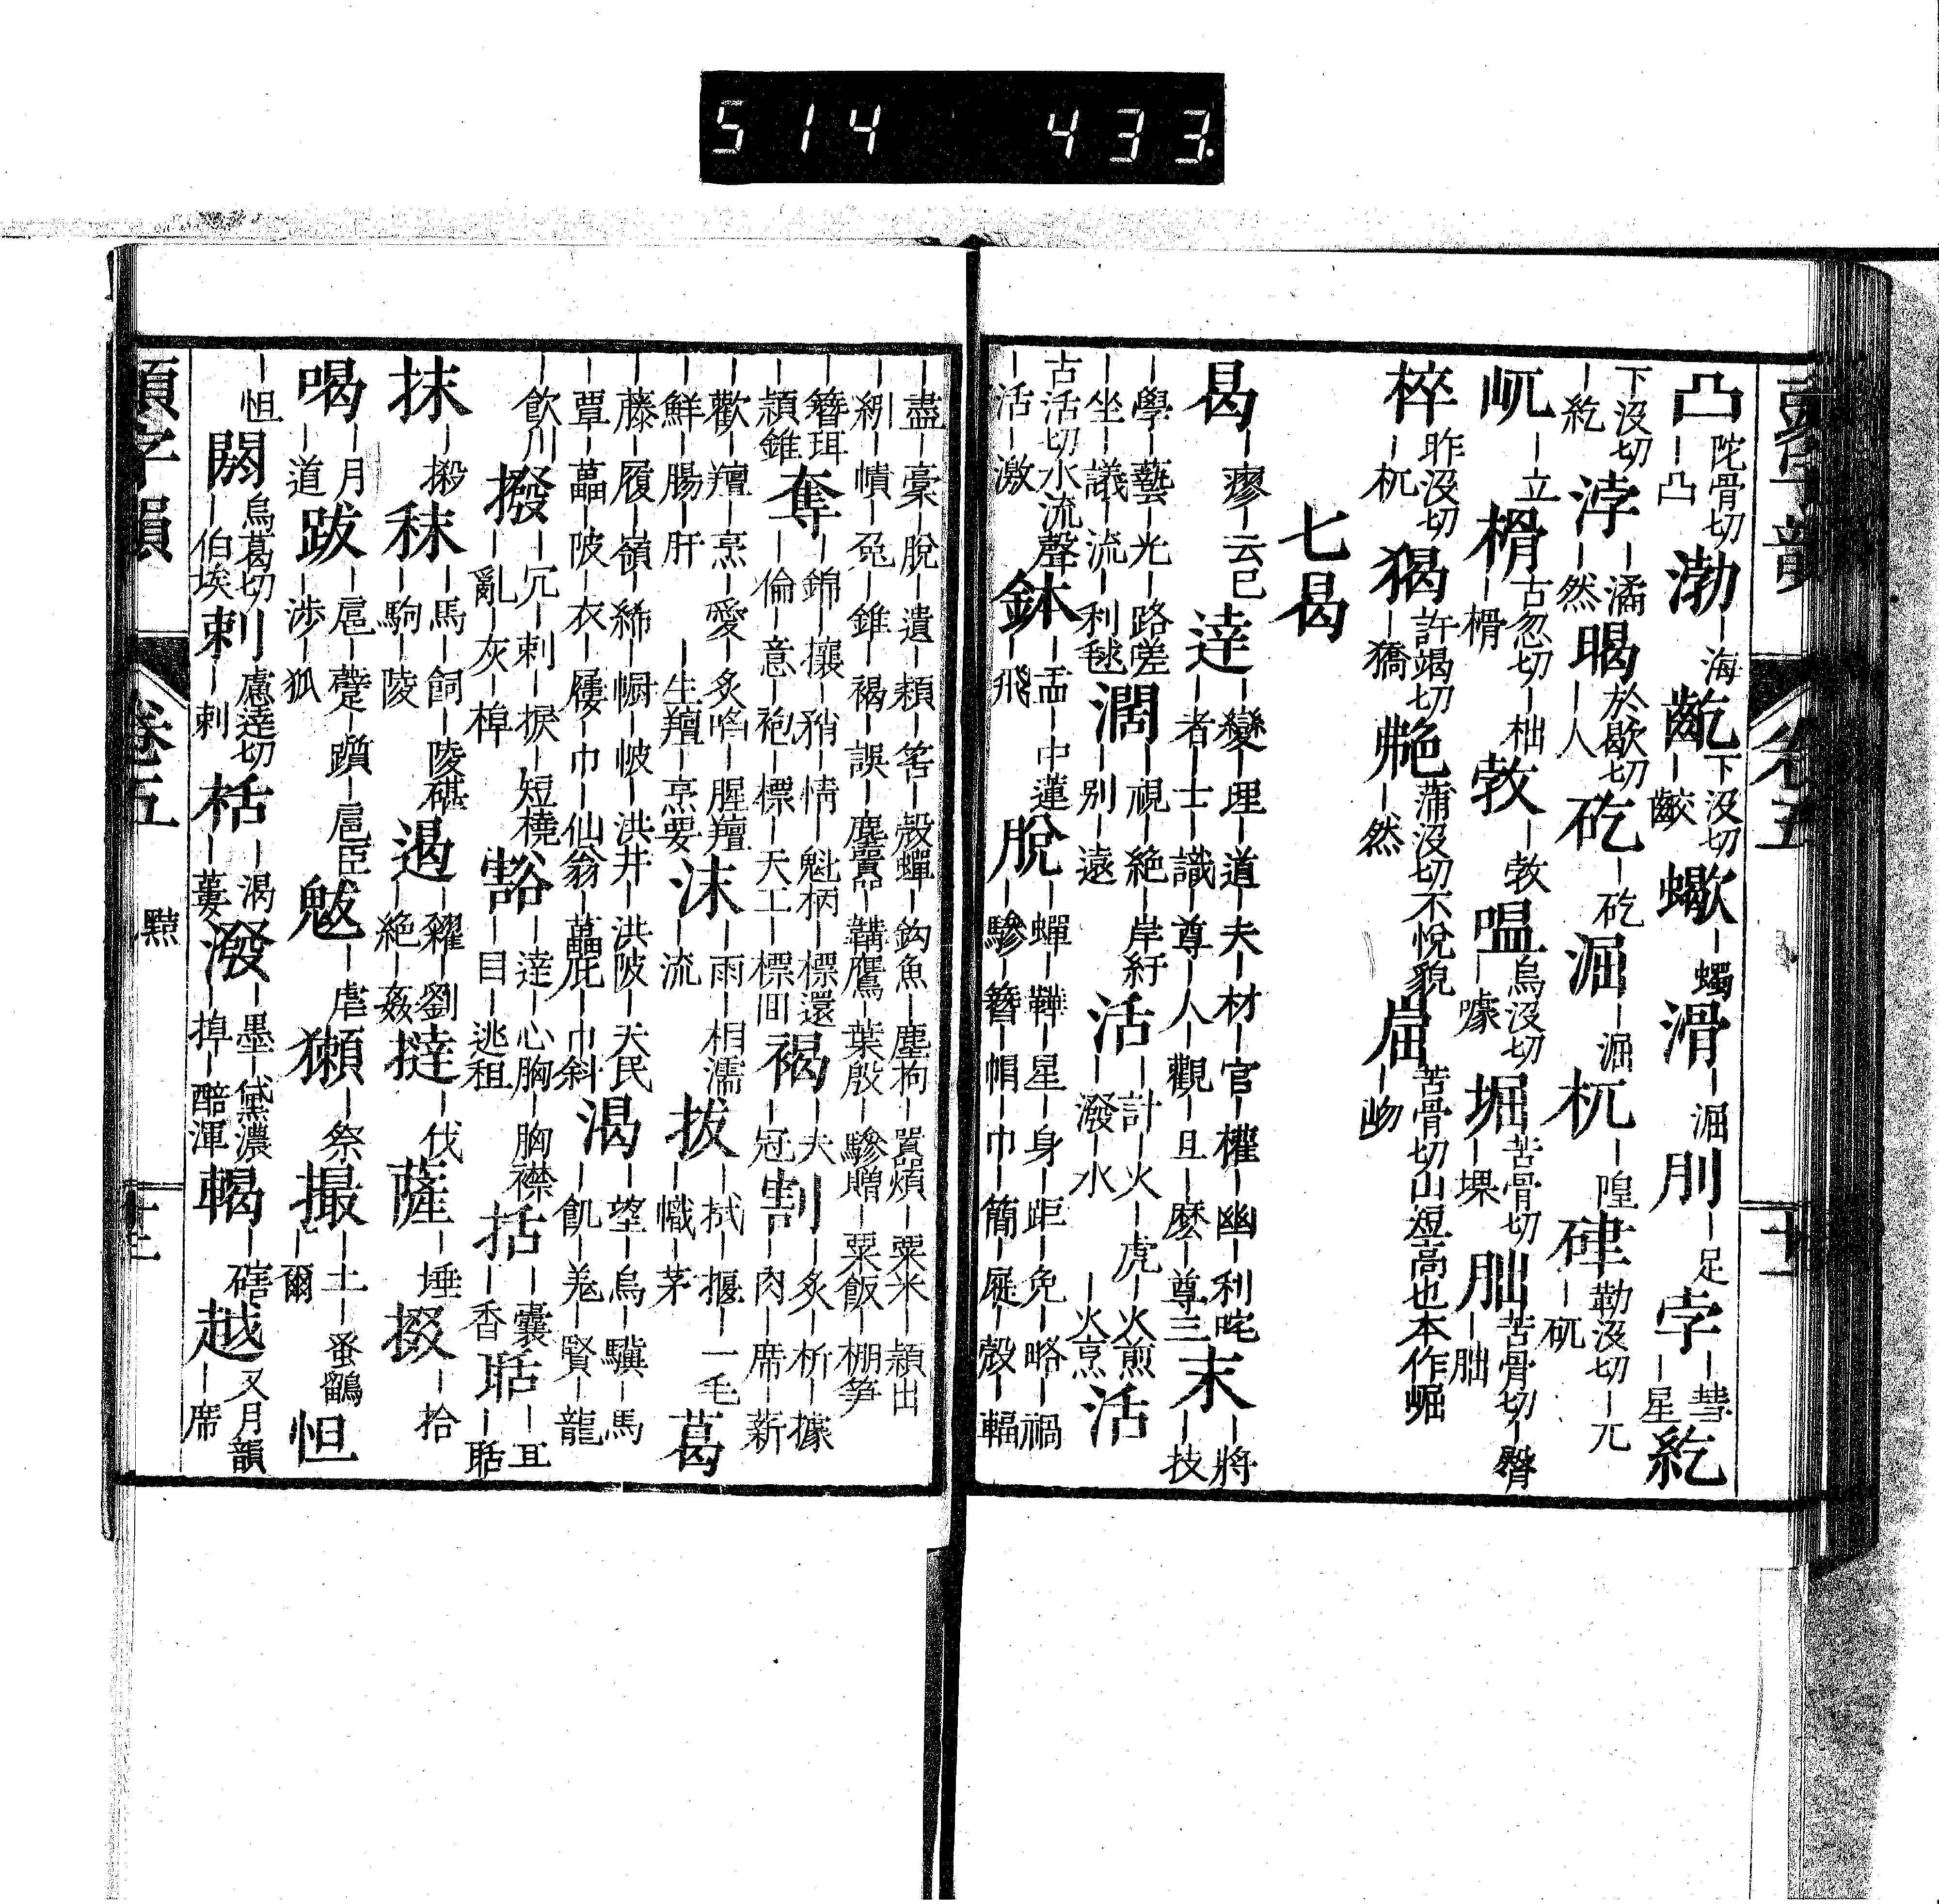 514 433
頭字韻 卷五
凸陀骨切｜凸 渤｜海 齕下没切｜齩 蠍｜蠋 滑｜淈 刖｜足 孛｜彗｜星 紇
下没切｜紇 浡｜潏｜然 暍於歇切｜人 矻｜矻 淈｜淈 杌｜隉 硉勒没切｜兀｜矹
屼｜立 榾古忽切｜柮｜榾 敩｜敩 嗢烏没切｜噱 堀苦骨切｜堁 胐苦骨切｜臀｜胐
椊昨没切｜杌 猲許竭切｜獢 艴蒲没切不悅貌｜然 崫苦骨切山短高也本作崛｜岉
七曷
曷｜瘳｜云已 達｜變｜理｜道｜夫｜材｜官｜權｜幽｜利咤｜者｜士｜識｜尊｜人｜觀｜旦｜麽｜尊三 末｜將｜技
｜學｜藝｜光｜路嗟｜坐｜議｜流｜利毬 濶｜視｜絶｜岸紆｜別｜遠 活｜計｜火｜虎｜火煎｜潑｜水｜火烹 活
古活切水流聲｜活｜激 鉢｜盂｜中蓮｜飛 脫｜蟬｜鞾｜星｜身｜距｜免｜略｜禍｜驂｜簪｜帽｜巾｜簡｜屣｜殼｜輻
｜盡｜稾｜脫｜遺｜穎｜筈｜殼蟬｜鈎魚｜塵拘｜買煩｜粟米｜穎出｜綱｜幘｜兔｜錐｜褐｜誤｜塵囂｜韝鷹｜葉殷｜驂贈｜粟飯｜棚笋
｜簪珥｜穎錐 奪｜錦｜攘｜矟｜情｜魁柄｜標還｜倫｜意｜袍｜標｜天工｜標回 褐｜夫｜冠 割｜炙｜析｜據｜肉｜席｜薪
｜歡｜羶｜烹｜愛｜炙啗｜腥羶｜鮮｜腸｜肝｜生羶｜烹要 沫｜雨｜相濡｜流 拔｜拭｜擢｜一毛｜幟｜茅 葛
｜藤｜履｜嶺｜絺｜幮｜帔｜洪井｜洪陂｜天民｜覃｜藟｜陂｜衣｜屨｜巾｜仙翁｜藟庇｜巾斜 渴｜望｜烏｜驥｜馬｜飢｜羗｜賢｜龍
｜飲川 撥｜冗｜剌｜捩｜短橈｜亂｜灰｜棹 豁｜達｜心胸｜胸襟｜目｜逃租 括｜囊｜香 聒｜耳｜聒
抹｜搬 秣｜馬｜飼｜陵碪｜駒｜陵 遏｜糴｜劉｜絶｜姦 撻｜伐 薩｜埵 掇｜拾
喝｜月｜道 跋｜扈｜躠｜躓｜扈臣｜涉｜狐 魃｜虐 獺｜祭 撮｜土｜蚤鶹｜爾 怛
｜怛 閼烏葛切｜伯｜埃 剌慮達切｜剌 栝｜渴｜蔞 潑｜墨｜黛濃｜掉｜醅渾 轕｜磍 越又月韻｜席
頭字韻 卷五 黠